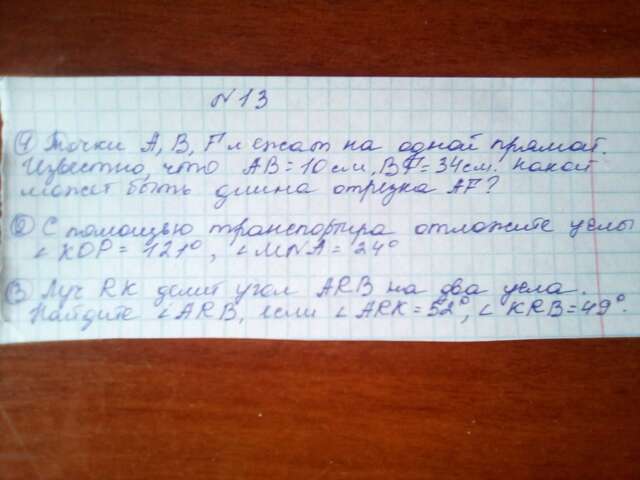 N 13
① Точки A, B, F лежат на одной прямой.
Известно, что AB = 10 см, BF = 34 см. какой
может быть длина отрезка AF?
② С помощью транспортира отложите углы
∠KOP = 121°, ∠MNA = 24°
③ Луч RK делит угол ARB на два угла.
Найдите ∠ARB, если ∠ARK = 52°, ∠KRB = 49°.